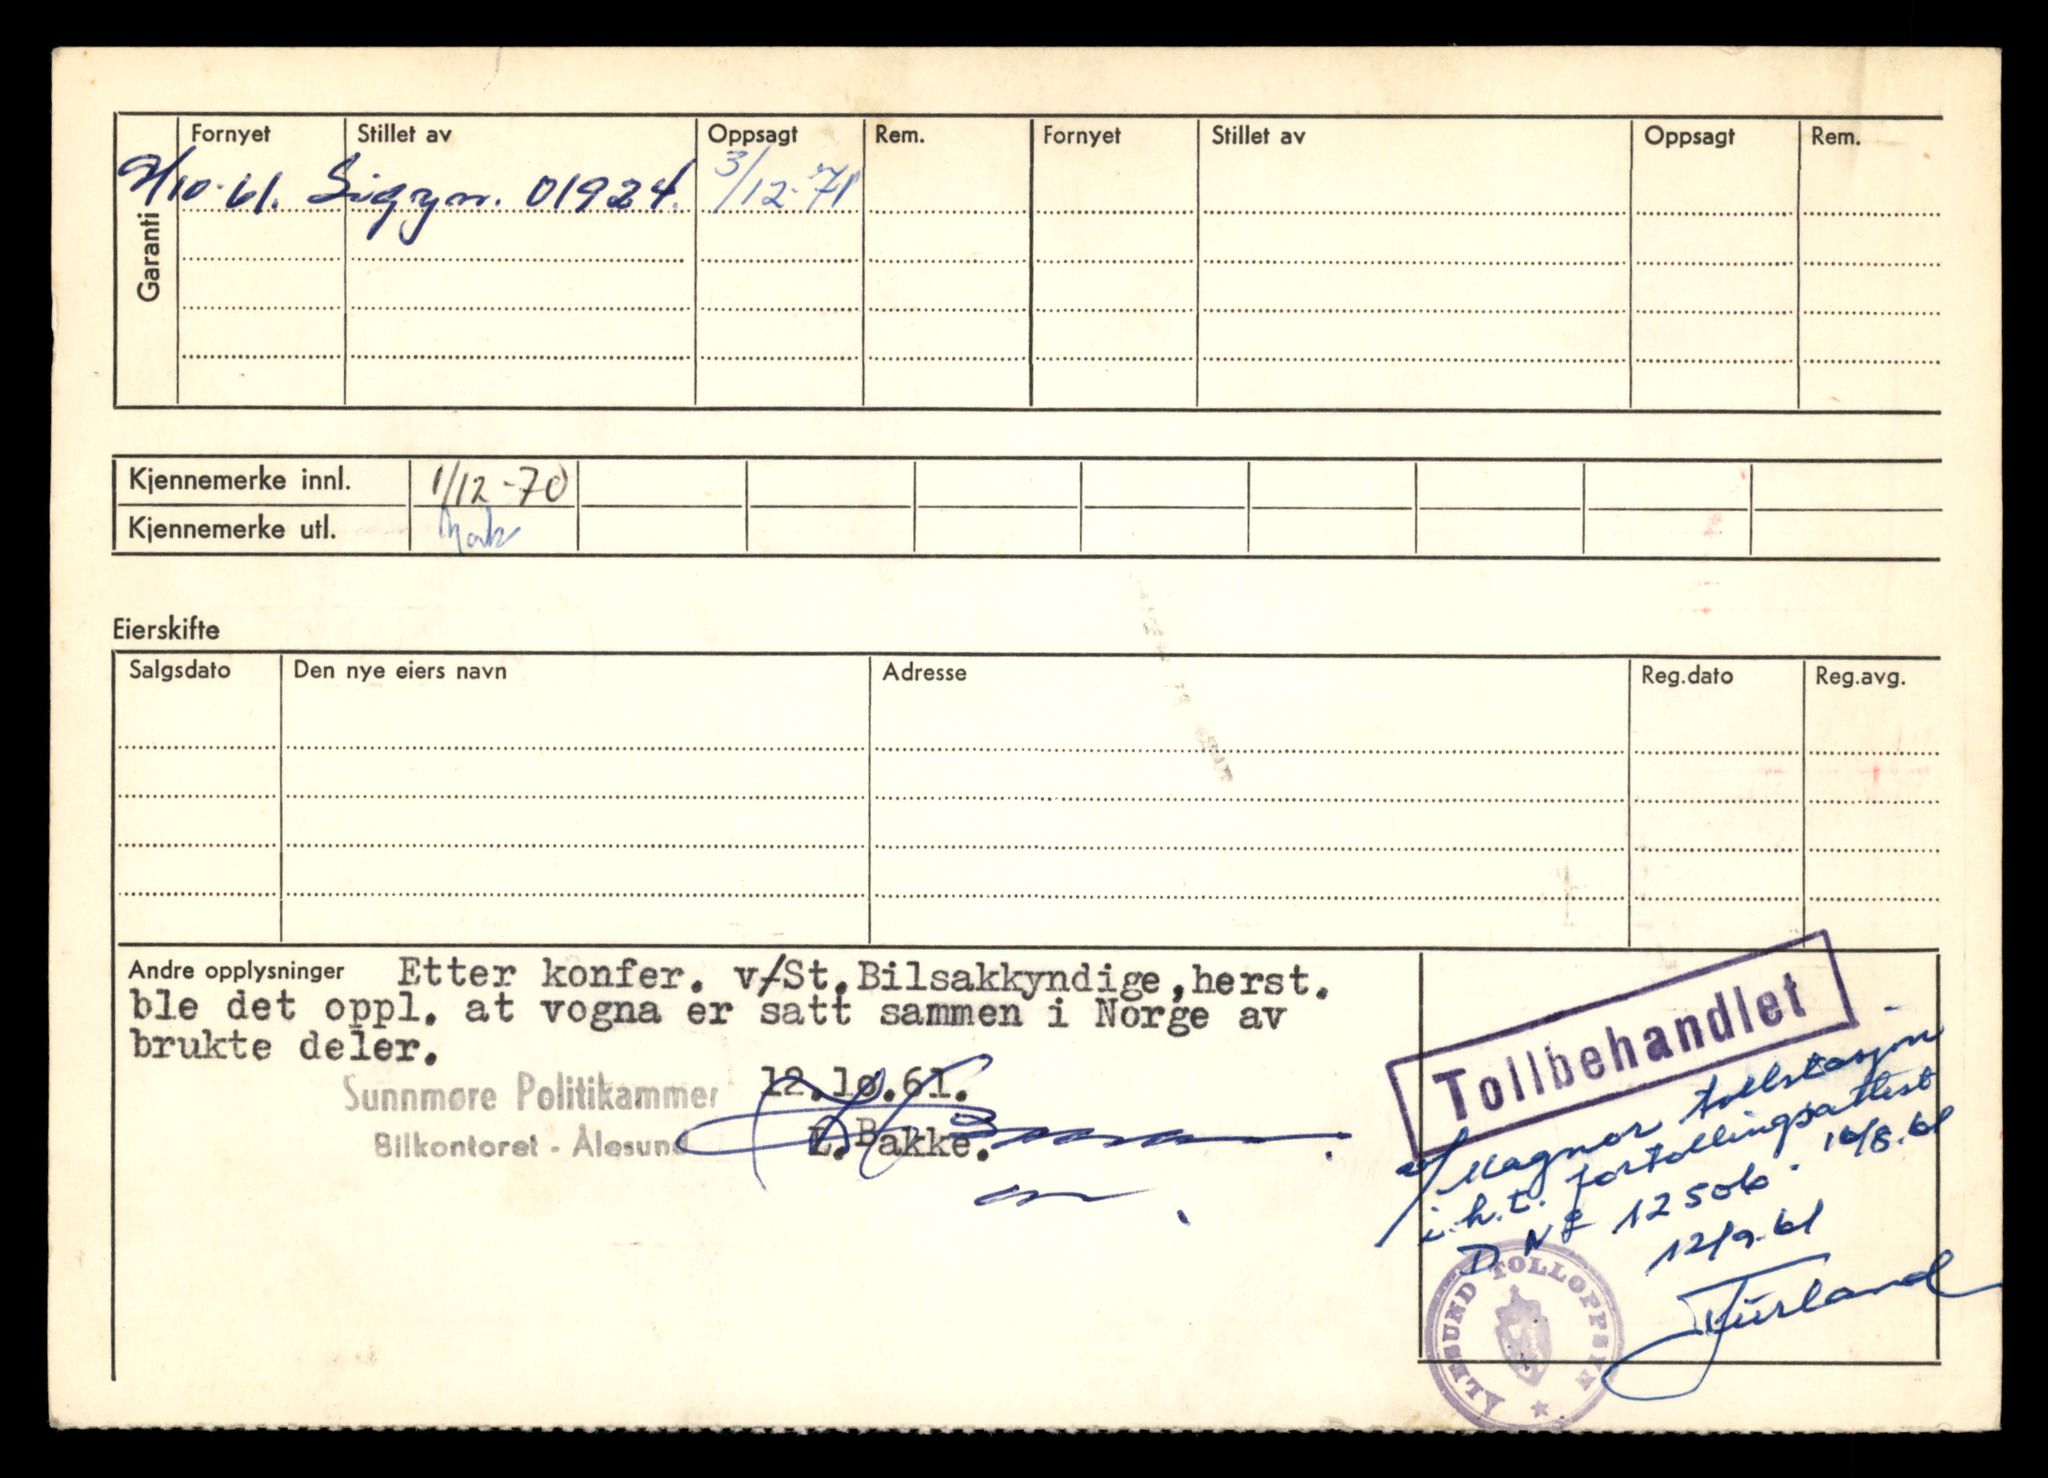 Garanti
Fornyet Stillet av Oppsagt Rem. Fornyet Stillet av Oppsagt Rem.
9/10-61. Sigyn. 01924. 3/12-71
Kjennemerke innl. 1/12-70
Kjennemerke utl.
Eierskifte
Salgsdato Den nye eiers navn Adresse Reg.dato Reg.avg.
Andre opplysninger Etter konfer. v/St.Bilsakkyndige,herst.
ble det oppl. at vogna er satt sammen i Norge av
brukte deler.
Sunnmøre Politikammer 12.10.61.
Bilkontoret - Ålesund L.Bakke.
Tollbehandlet
v/Magnor tollstasjon
i.h.t. fortollingsattest
D Nº 12506. 16/8.61
12/9.61
Furland
ÅLESUND TOLLOPPSYN